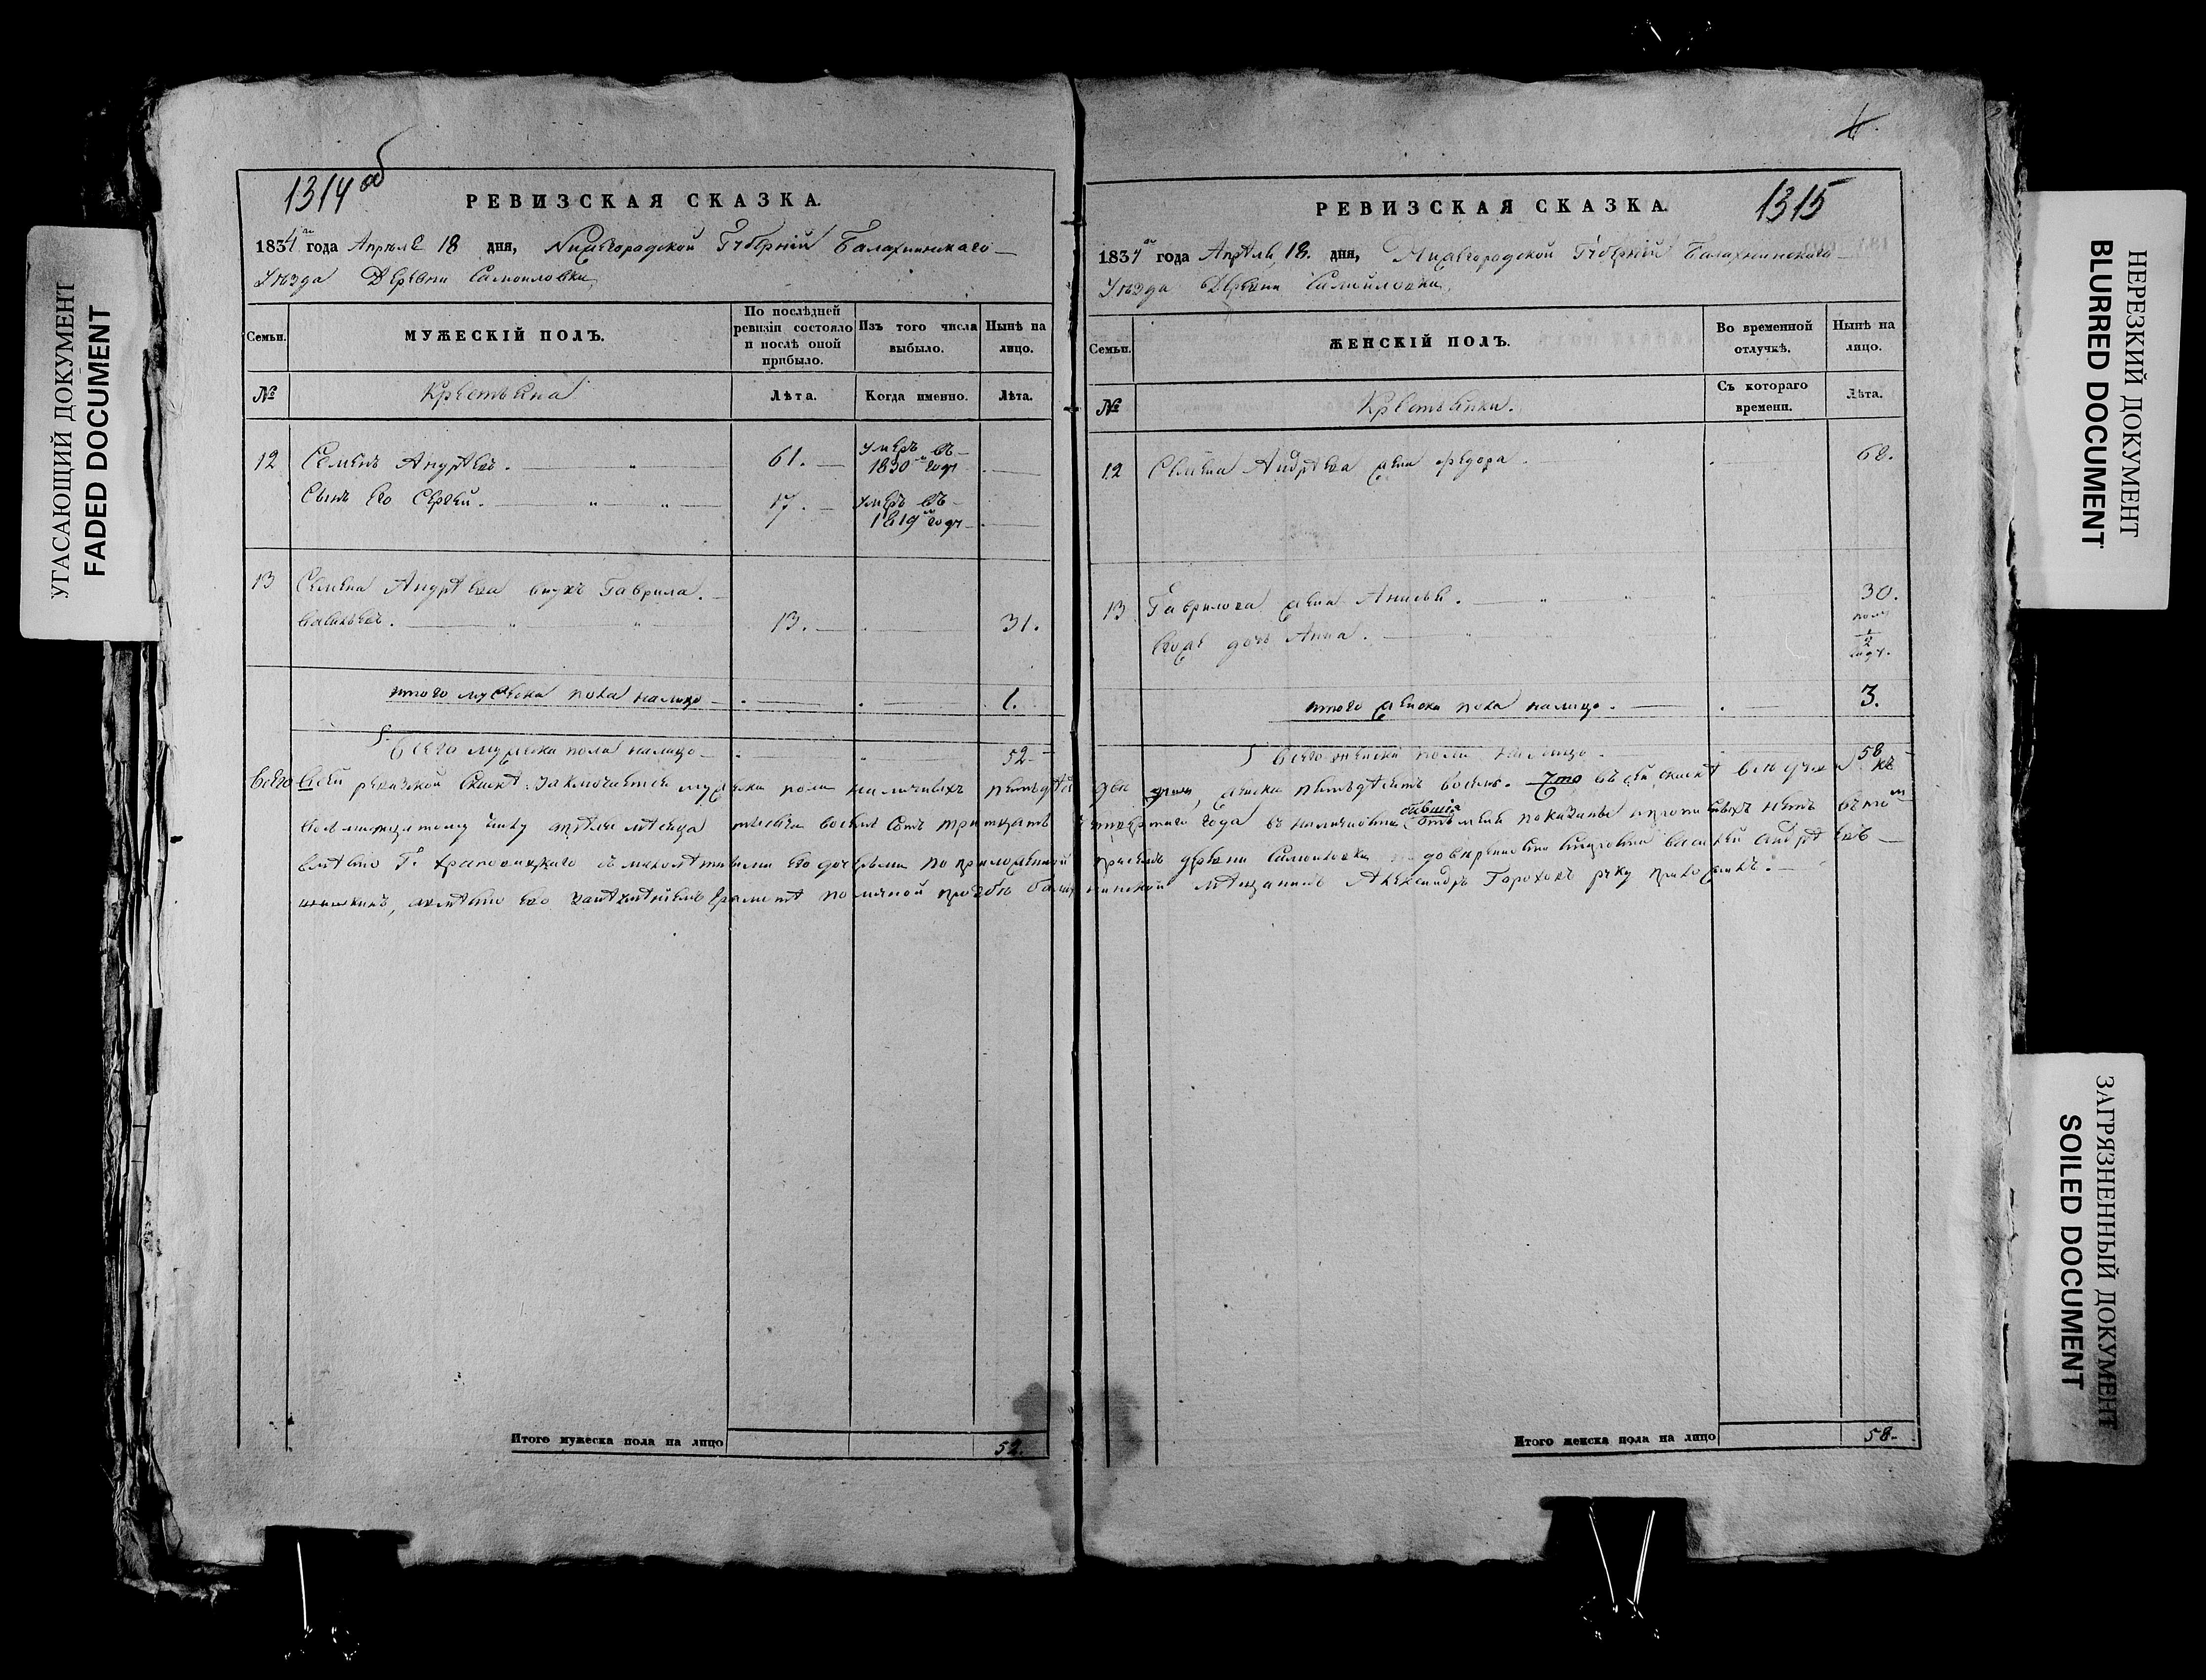 УГАСАЮЩИЙ ДОКУМЕНТ
FADED DOCUMENT
1314 об
РЕВИЗСКАЯ СКАЗКА.
1834 года Апреля 18 дня, Нижегородской Губерніи Балахнинскаго
Уѣзда Деревни Самоиловки
Семьи.
МУЖЕСКІЙ ПОЛЪ.
По послѣдней ревизіи состояло и послѣ оной прибыло.
Изъ того числа выбыло.
Нынѣ на лицо.
№
Крестьяна
Лѣта.
Когда именно.
Лѣта.
12 Семенъ Андрѣевъ. 61. умеръ въ
1830 м году
Сынъ его Сергей. 17. умеръ въ
1819 м году
13 Семена Андрѣева внукъ Гаврила.
Васильевъ. 13. 31.
итого мужеска пола налицо 1.
Всего мужеска пола налицо 52
Итого мужеска пола на лицо 52.
1315
РЕВИЗСКАЯ СКАЗКА.
1834 года Апрѣля 18. дня, Нижегородской Губерніи Балахнинскаго
Уѣзда Деревни Самойловки
Семьи.
ЖЕНСКІЙ ПОЛЪ.
Во временной отлучкѣ.
Нынѣ на лицо.
№
Крестьянки.
Съ котораго времени.
Лѣта.
12 Семена Андрѣева жена Федора. 68.
13 Гаврилова жена Анисья. 30.
Егоже дочь Анна. полу
1/2
году.
итого женска пола налицо. 3.
Всего женска пола налицо. 58
Всего въ сей ревизской сказкѣ заключается мужеска пола наличныхъ пятьдесятъ два души, женска пятьдесятъ восемь. Что въ сей сказкѣ всѣ души къ
восемнадцатому числу апрѣля мѣсяца тысяча восемь сотъ тридцать четвертаго года въ наличности бывшія показаны и прописныхъ нѣтъ въ том
приселкѣ деревни Самойловки довѣренность Василей Андрѣевъ
его неумѣніемъ грамотѣ по личной прозьбѣ балахнинской мѣщанинъ Александръ Гороховъ руку приложилъ.
Итого женска пола на лицо 58
НЕРЕЗКИЙ ДОКУМЕНТ
BLURRED DOCUMENT
ЗАГРЯЗНЕННЫЙ ДОКУМЕНТ
SOILED DOCUMENT